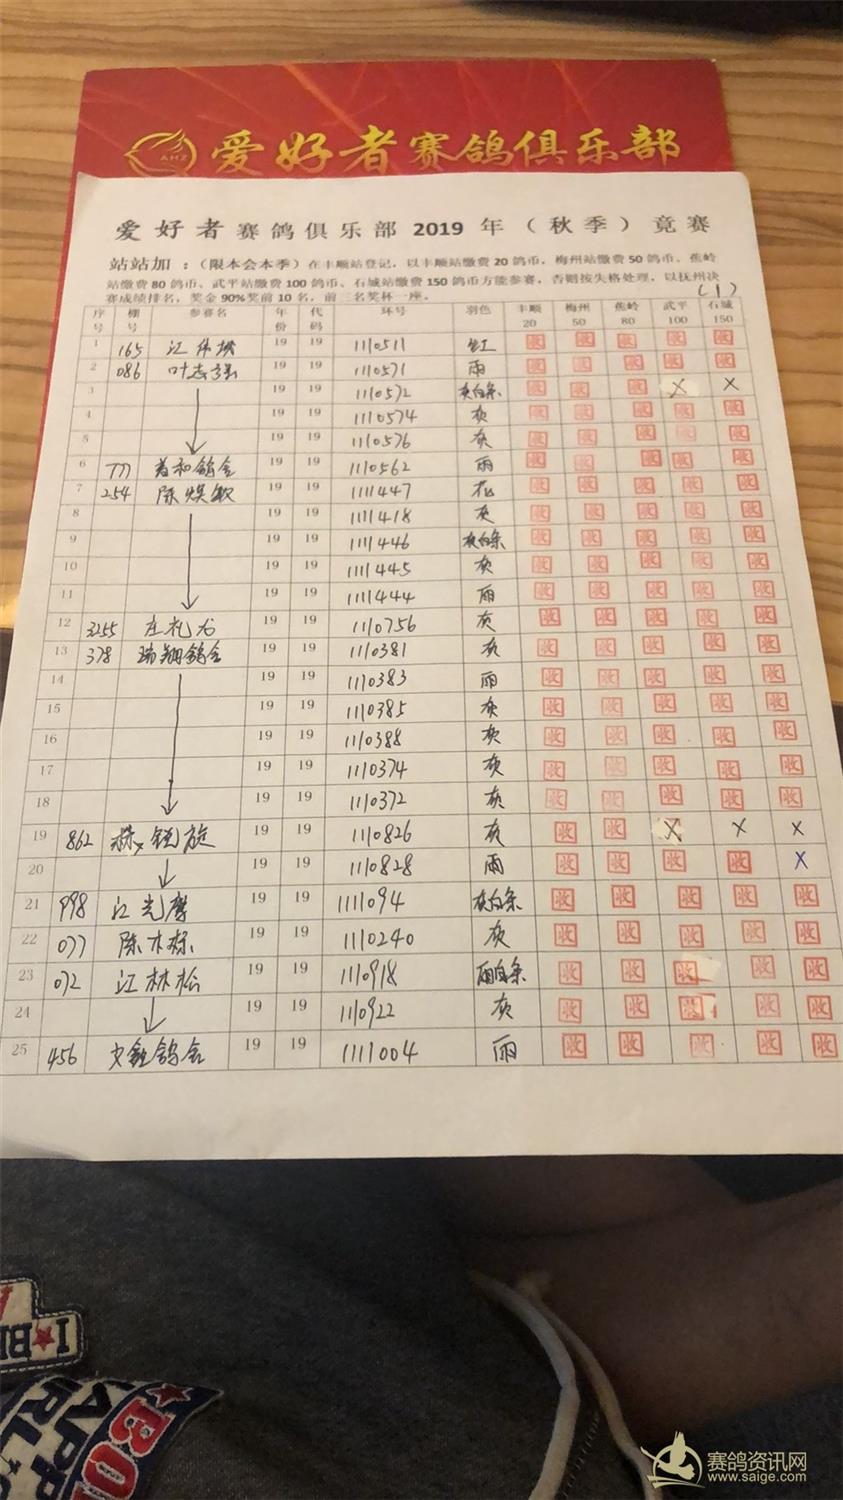 AHZ 爱好者赛鸽俱乐部
爱好者赛鸽俱乐部2019年(秋季)竟赛
站站加:(限本会本季)在丰顺站登记,以丰顺站缴费20鸽币,梅州站缴费50鸽币、蕉岭
站缴费80鸽币、武平站缴费100鸽币、石城站缴费150鸽币方能参赛,否则按失格处理,以抚州决
赛成绩排名,奖金90%奖前10名,前三名奖杯一座。 (1)
序号 棚号 参赛名 年份 代码 环号 羽色 丰顺20 梅州50 蕉岭80 武平100 石城150
1 165 江伟 19 19 1110511 红 收 收 收 收 收
2 086 叶志强 19 19 1110571 雨 收 收 收 收 收
3 19 19 1110572 灰白条 收 收 收 X X
4 19 19 1110574 灰 收 收 收 收 收
5 19 19 1110576 灰 收 收 收 收 收
6 777 和鸽舍 19 19 1110562 雨 收 收 收 收 收
7 254 陈焕敏 19 19 1111447 花 收 收 收 收 收
8 19 19 1111418 灰 收 收 收 收 收
9 19 19 1111446 灰白条 收 收 收 收 收
10 19 19 1111445 灰 收 收 收 收 收
11 19 19 1111444 雨 收 收 收 收 收
12 3255 庄礼龙 19 19 1110756 灰 收 收 收 收 收
13 378 瑞翔鸽舍 19 19 1110381 灰 收 收 收 收 收
14 19 19 1110383 雨 收 收 收 收 收
15 19 19 1110385 灰 收 收 收 收 收
16 19 19 1110388 灰 收 收 收 收 收
17 19 19 1110374 灰 收 收 收 收 收
18 19 19 1110372 灰 收 收 收 收 收
19 862 锐旋 19 19 1110826 灰 收 收 X X X
20 19 19 1110828 雨 收 收 收 收 X
21 998 江光 19 19 1111094 灰白条 收 收 收 收 收
22 077 陈木栋 19 19 1110240 灰 收 收 收 收 收
23 072 江林松 19 19 1110918 雨白条 收 收 收 收 收
24 19 19 1110922 灰 收 收 收 收 收
25 456 文鑫鸽舍 19 19 1111004 雨 收 收 收 收 收
赛鸽资讯网
www.saige.com